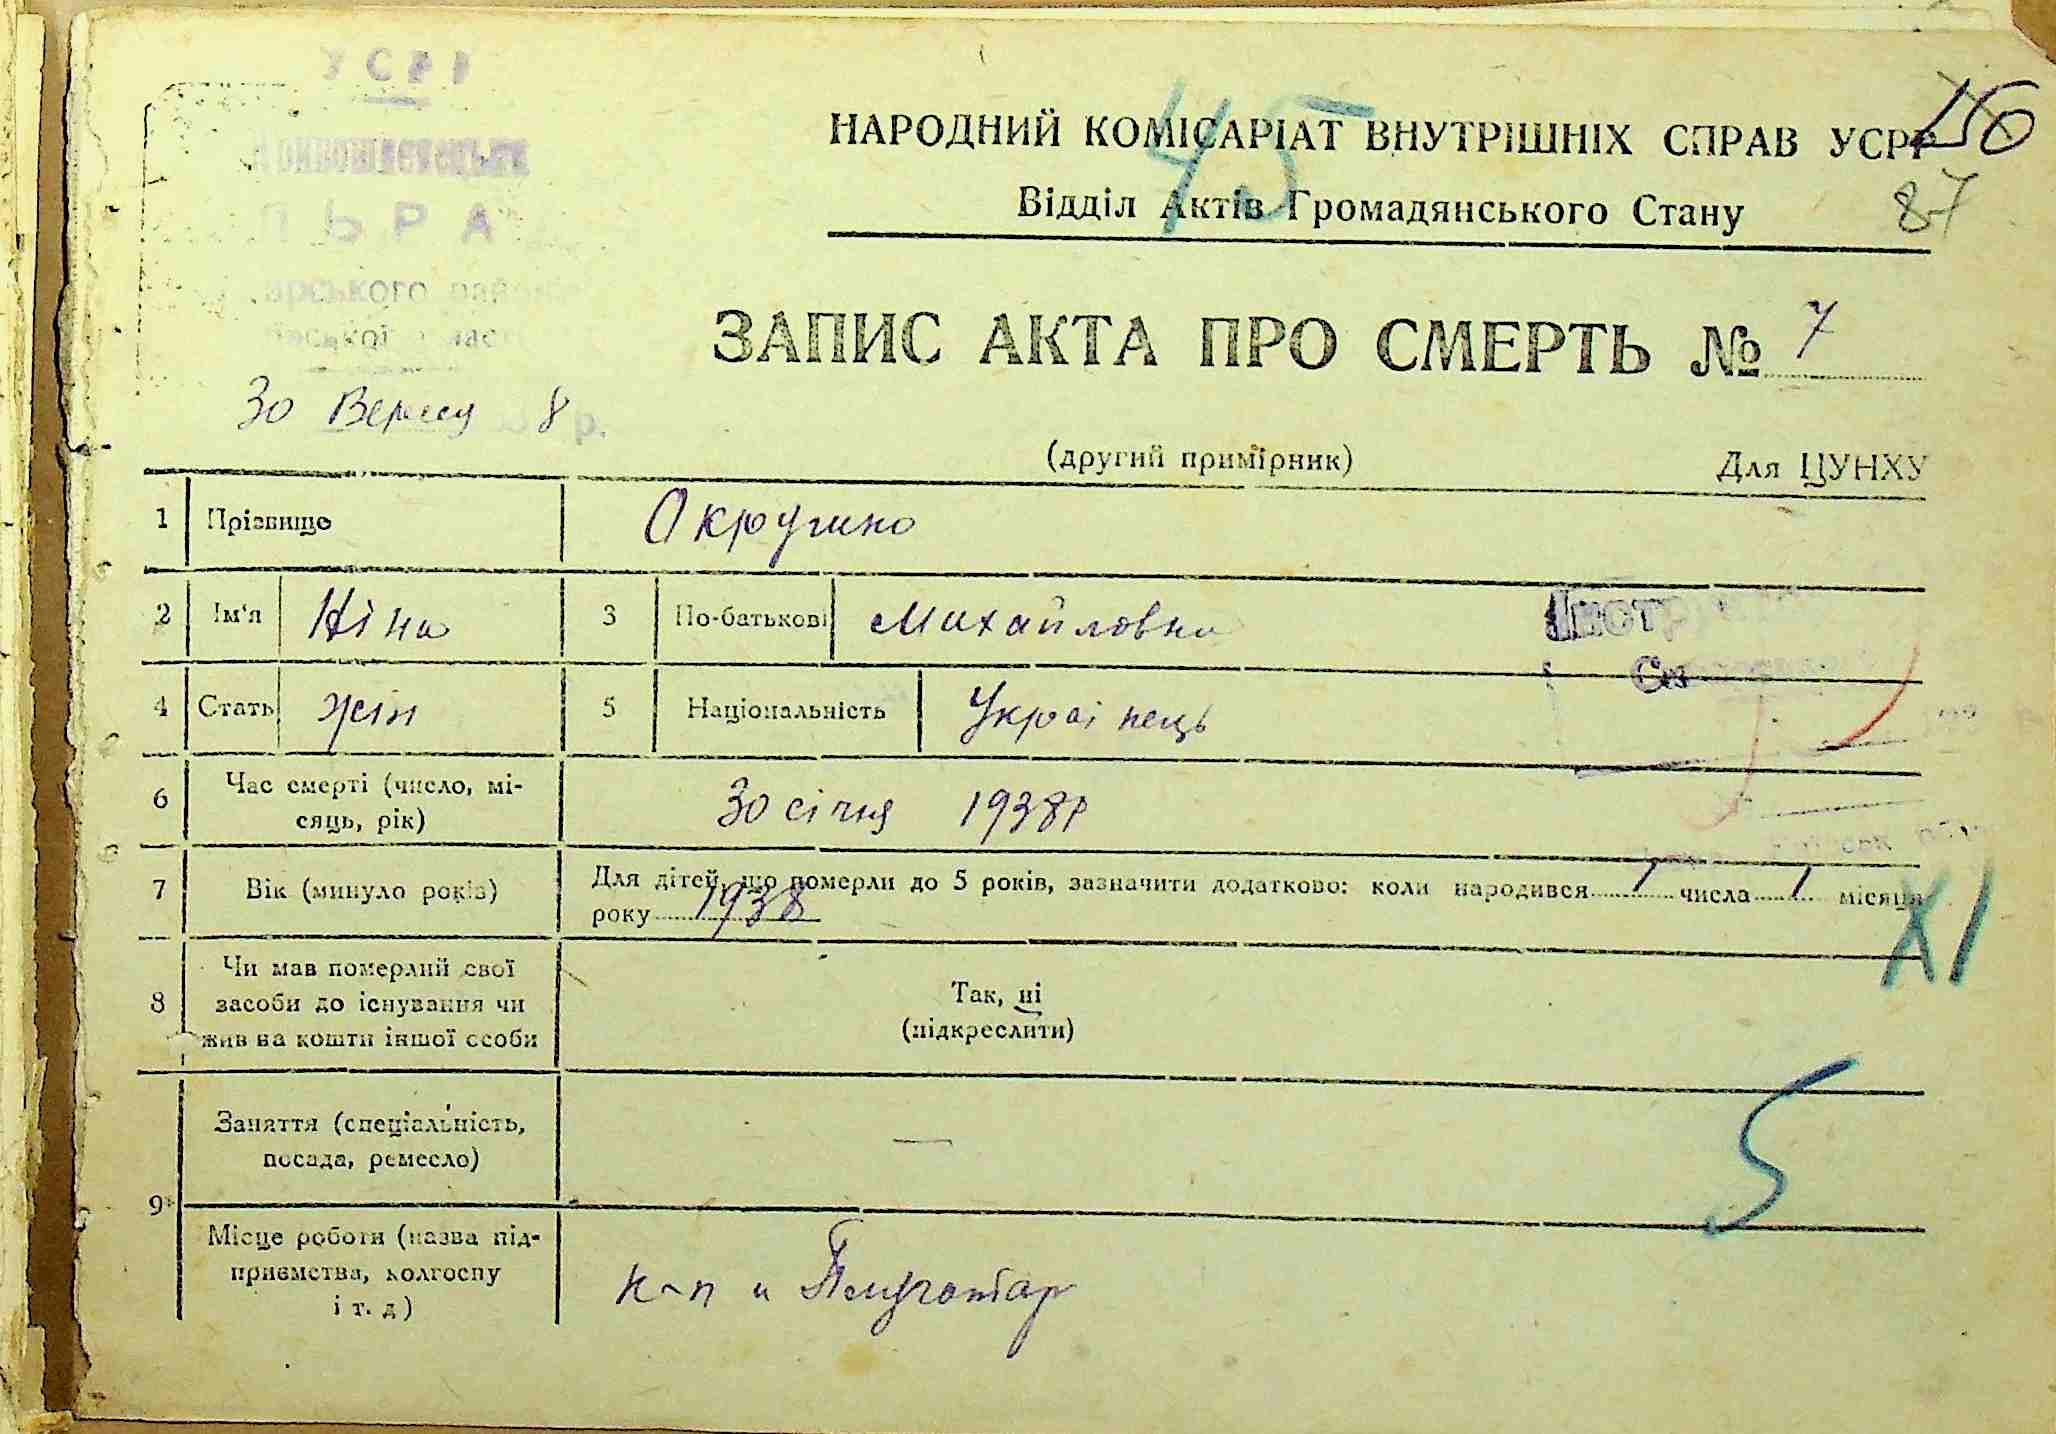 УСРР
ЛЬРА
45
56
87
НАРОДНИЙ КОМІСАРІАТ ВНУТРІШНІХ СПРАВ УСРР
Відділ Актів Громадянського Стану
ЗАПИС АКТА ПРО СМЕРТЬ № 7
30 8 р.
(другий примірник) Для ЦУНХУ
1 Прізвище
2 Ім'я Ніна 3 По-батькові Михайловна
4 Стать жін 5 Національність Українець
6 Час смерті (число, мі-
сяць, рік) 30 січня 1938р
7 Вік (минуло років) Для дітей, що померли до 5 років, зазначити додатково: коли народився 1 числа 1 місяця
року 1938
XI
8 Чи мав померлий свої
засоби до існування чи
жив на кошти іншої особи
Так, ні
(підкреслити)
5
9 Заняття (спеціальність,
посада, ремесло) —
Місце роботи (назва під-
приємства, колгоспу
і т. д)